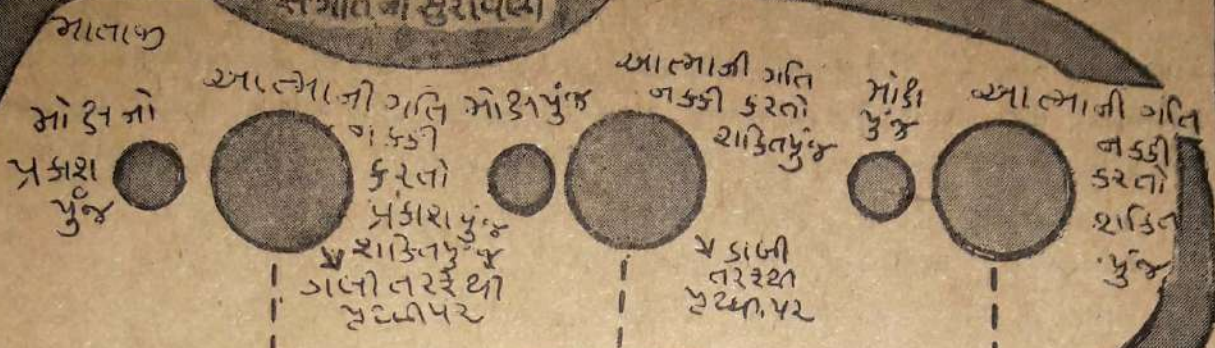 સંગીતની સુરાવલી
માતાજી
મોક્ષનો
પ્રકાશ
પુંજ
આત્માની ગતિ
નક્કી
કરતો
પ્રકાશપુંજ
શક્તિપુંજ
ડાબી તરફથી
પૃથ્વીપર
મોક્ષપુંજ
આત્માની ગતિ
નક્કી કરતો
શક્તિપુંજ
ડાબી
તરફથી
પૃથ્વી પર
મોક્ષ
પુંજ
આત્માની ગતિ
નક્કી
કરતો
શક્તિ
પુંજ